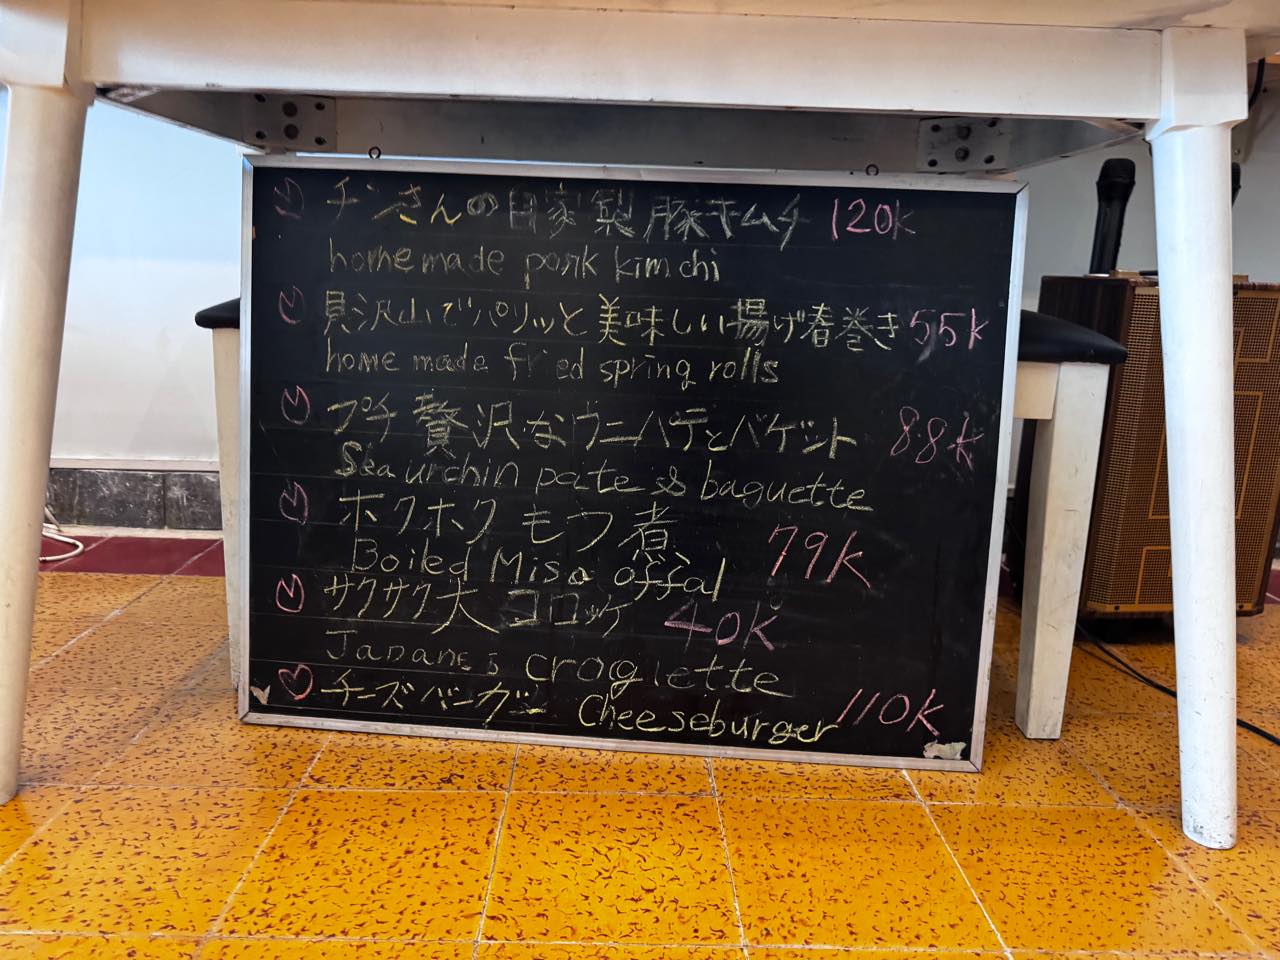 チンさんの自家製豚キムチ 120k
home made pork kimchi
具沢山でパリッと美味しい揚げ春巻き 55k
home made fried spring rolls
プチ贅沢なウニパテとバゲット 88k
Sea urchin pate & baguette
ホクホクもつ煮 79k
Boiled Miso offal
サクサク大コロッケ 40k
Japanes croquette
チーズバーガー Cheeseburger 110k